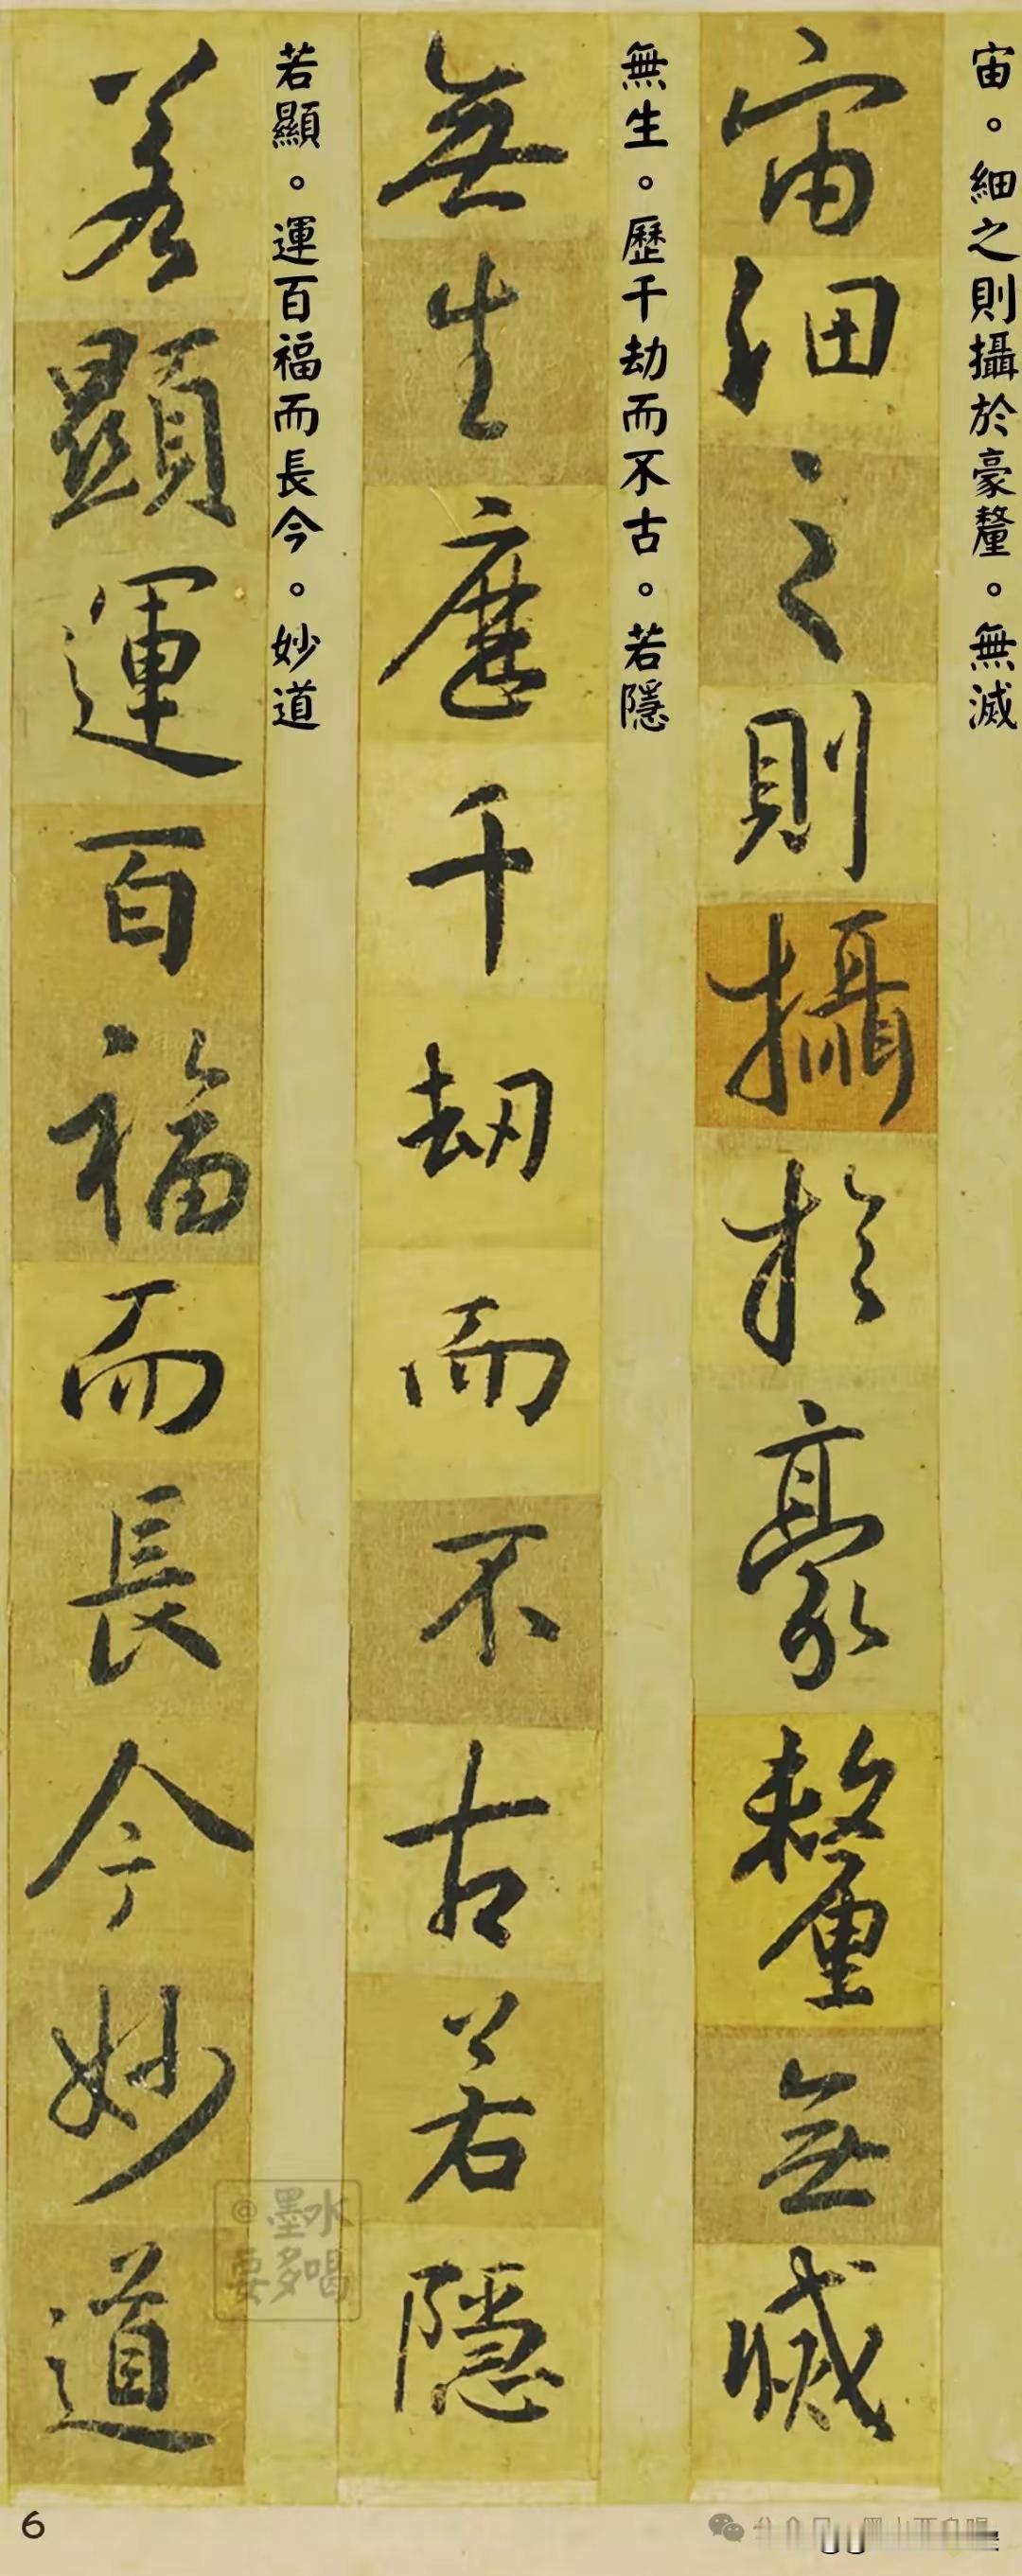 宙。細之則攝於豪釐。無滅
宙細之則攝於豪釐無滅
無生。歷千劫而不古。若隱
無生歷千劫而不古若隱
若顯。運百福而長今。妙道
若顯運百福而長今妙道
@墨水
要多喝
6